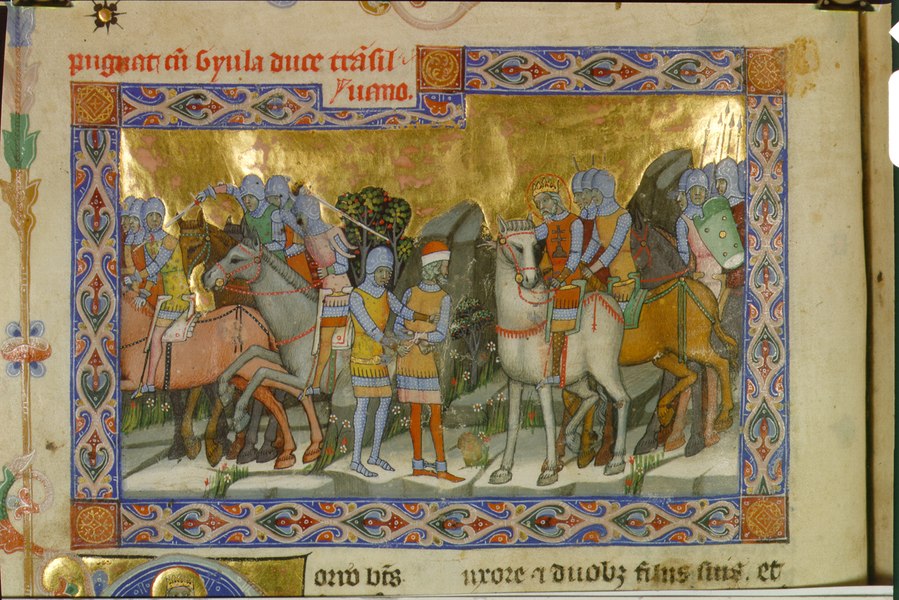 pugnat cū Gyula duce trāsil
uano.
orio btī
uxore ⁊ duobꝫ filiis suis. et